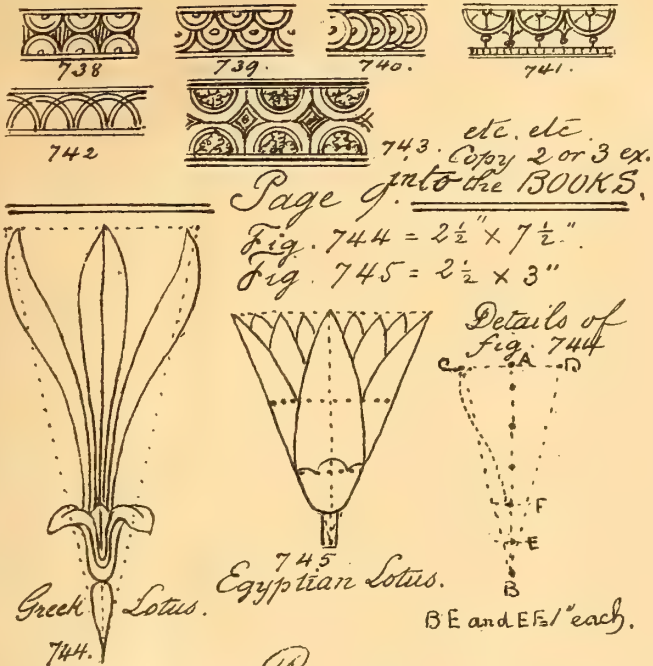 738
739.
740.
741.
742
743.
etc. etc.
Copy 2 or 3 ex.
into the BOOKS.
Page 9.
Fig. 744 = 2 1/2" x 7 1/2".
Fig. 745 = 2 1/2 x 3"
Details of
fig. 744
C A D
F
E
B
BE and EF = 1" each.
745
Egyptian Lotus.
Greek Lotus.
744.